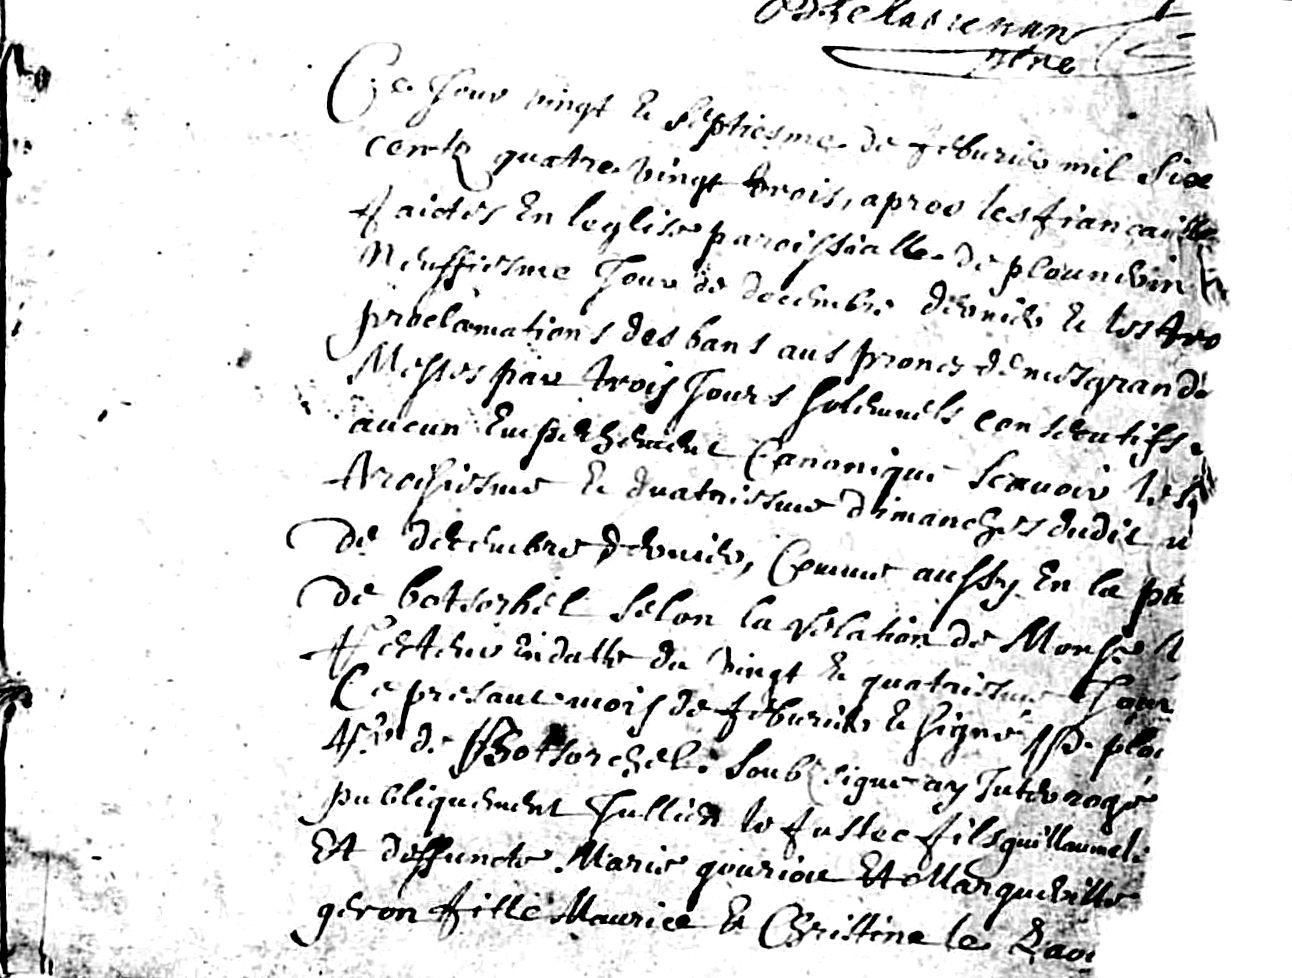 Ce Jour vingt & septiesme de febvrier mil Six
centz quatre vingt trois, apres les fiancailles
faictes En leglise paroissialle de plounevin
Neuffiesme Jour de decembre dernier & les tro
proclamations des bans aus prones de nos grande
Messes par trois Jours solemnels consecutifs
aucun Empechement Canonique Scavoir les
troisiesme & quatriesme dimanches dudit
de decembre dernier, Comme aussy En la pa
de botsorhel selon la relation de Monsr
recteur En datte du vingt & quatriesme Jour
Ce presant mois de febvrier & signé
de Botsorchel. Soub signe ay Interrogé
publiquement Jullien le fustec fils guillaume
Et deffuncte Marie gouriou Et Margueritte
geron fille Maurice & Christine le